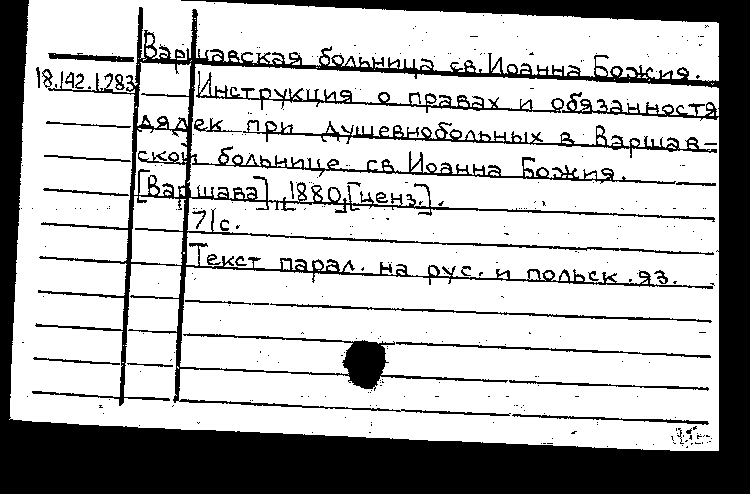 Варшавская больница св. Иоанна Божия.
18.142.1.283
Инструкция о правах и обязанностя
дядек при душевнобольных в Варшав-
ской больнице св. Иоанна Божия.
[Варшава], [1880, [ценз.].
71с.
Текст парал. на рус. и польск. яз.